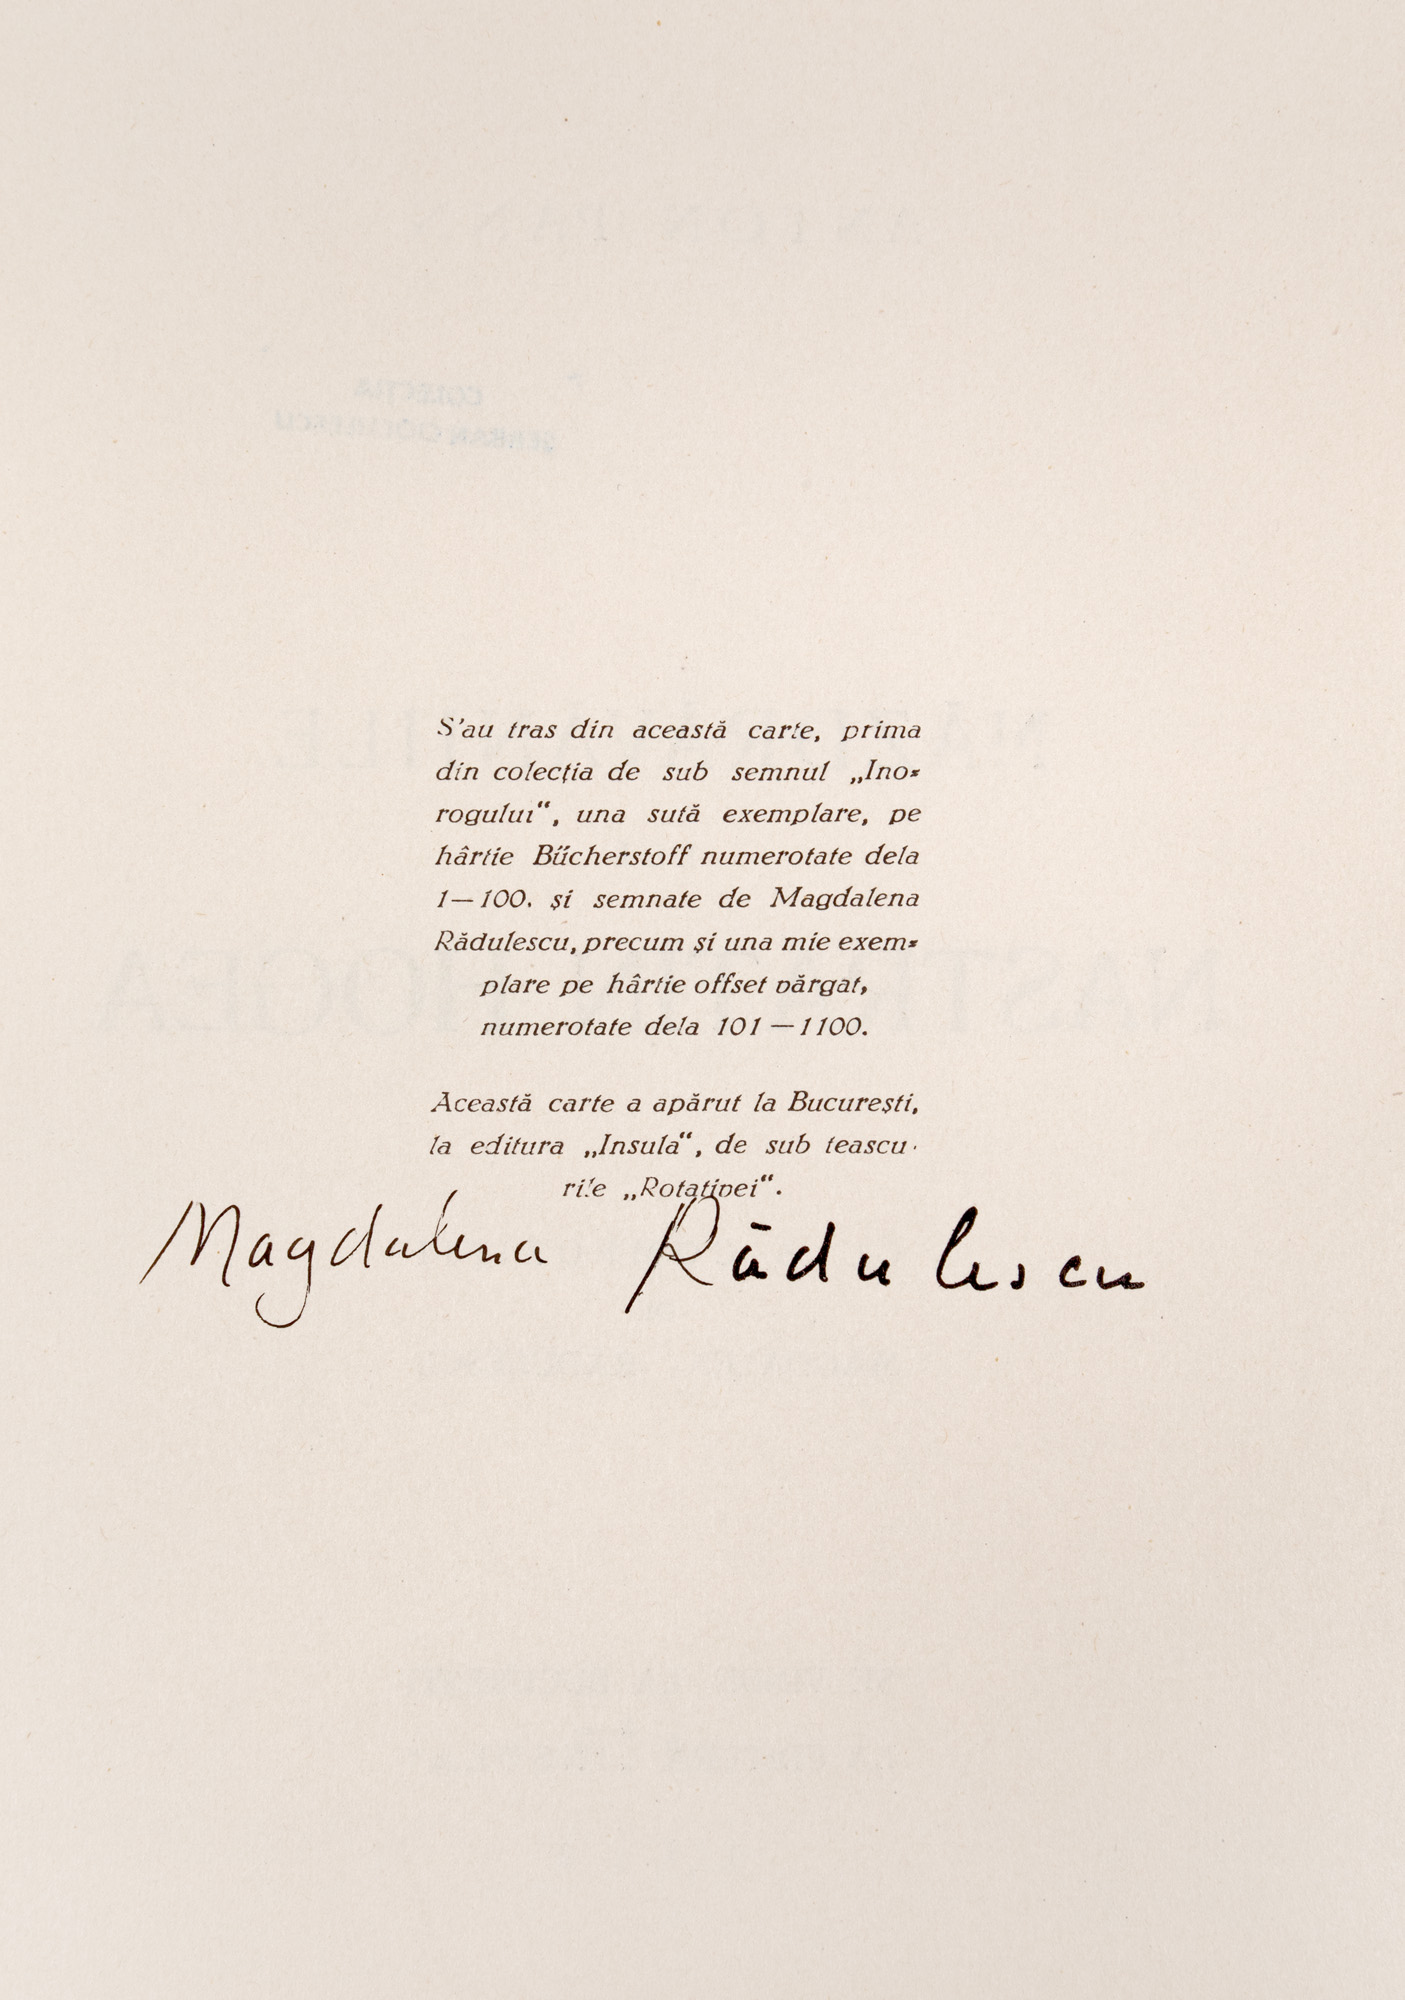 S'au tras din această carte, prima
din colecția de sub semnul „Ino-
rogului“, una sută exemplare, pe
hârtie Bücherstoff numerotate dela
1—100. și semnate de Magdalena
Rădulescu, precum și una mie exem-
plare pe hârtie offset vărgat,
numerotate dela 101—1100.
Această carte a apărut la București,
la editura „Insula“, de sub teascu-
rile „Rotativei“.
Magdalena Rădulescu